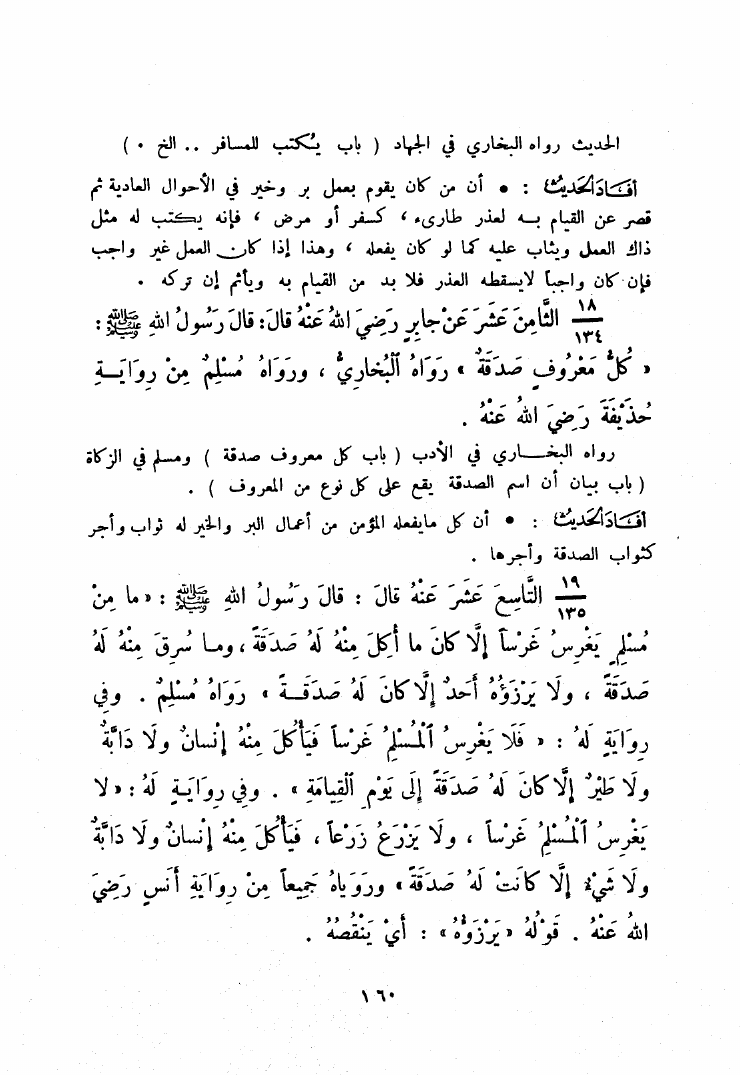 الحديث رواه البخاري في الجهاد ( باب يُكتب للمسافر .. الخ . )
أفَادَ الحَديثُ : • أن من كان يقوم بعمل بر وخير في الأحوال العادية ثم
قصر عن القيام به لعذر طارىء ، كسفر أو مرض ، فإنه يكتب له مثل
ذاك العمل ويثاب عليه كما لو كان يفعله ، وهذا إذا كان العمل غير واجب
فإن كان واجباً لايسقطه العذر فلا بد من القيام به ويأثم إن تركه .
١٨/١٣٤ الثَّامِنَ عَشَرَ عَنْ جابِرٍ رَضِيَ اللهُ عَنْهُ قالَ: قالَ رَسُولُ اللهِ ﷺ :
« كُلُّ مَعْرُوفٍ صَدَقَةٌ » رَوَاهُ ٱلْبُخارِيُّ ، ورَوَاهُ مُسْلِمٌ مِنْ رِوَايَةِ
حُذَيْفَةَ رَضِيَ اللهُ عَنْهُ .
رواه البخاري في الأدب ( باب كل معروف صدقة ) ومسلم في الزكاة
( باب بيان أن اسم الصدقة يقع على كل نوع من المعروف ) .
أفَادَ الحَديثُ : • أن كل مايفعله المؤمن من أعمال البر والخير له ثواب وأجر
كثواب الصدقة وأجرها .
١٩/١٣٥ التَّاسِعَ عَشَرَ عَنْهُ قالَ : قالَ رَسُولُ اللهِ ﷺ : « ما مِنْ
مُسْلِمٍ يَغْرِسُ غَرْساً إِلَّا كانَ ما أُكِلَ مِنْهُ لَهُ صَدَقَةً ، وما سُرِقَ مِنْهُ لَهُ
صَدَقَةً ، ولَا يَرْزَؤُهُ أَحَدٌ إِلَّا كانَ لَهُ صَدَقَةً » رَوَاهُ مُسْلِمٌ . وفي
رِوَايَةٍ لَهُ : « فَلَا يَغْرِسُ ٱلْمُسْلِمُ غَرْساً فَيَأْكُلَ مِنْهُ إِنْسانٌ ولَا دَابَّةٌ
ولَا طَيْرٌ إِلَّا كانَ لَهُ صَدَقَةً إِلَى يَوْمِ ٱلْقِيامَةِ » . وفي رِوَايَةٍ لَهُ : « لا
يَغْرِسُ ٱلْمُسْلِمُ غَرْساً ، ولَا يَزْرَعُ زَرْعاً ، فَيَأْكُلَ مِنْهُ إِنْسانٌ ولَا دَابَّةٌ
ولَا شَيْءٌ إِلَّا كانَتْ لَهُ صَدَقَةً » ورَوَياهُ جَمِيعاً مِنْ رِوَايَةِ أَنَسٍ رَضِيَ
اللهُ عَنْهُ . قَوْلُهُ « يَرْزَؤُهُ » : أَيْ يَنْقُصُهُ .
١٦٠